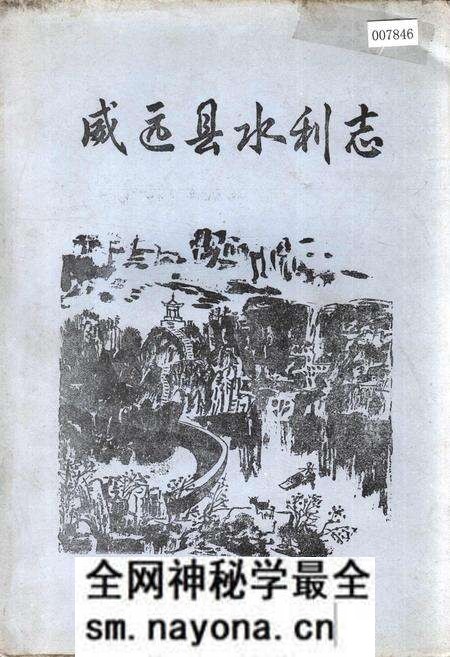 007846
威远县水利志
全网神秘学最全
sm.nayona.cn